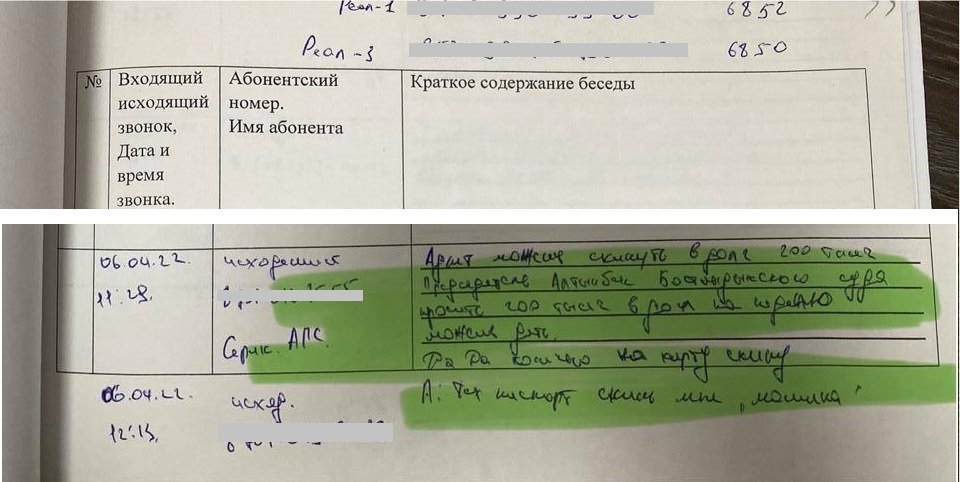 Реал-1 6852
Реал-3 6850
№ Входящий исходящий звонок, Дата и время звонка.
Абонентский номер. Имя абонента
Краткое содержание беседы
06.04.22. исходящий
11:28,
Серик. АПС.
можешь скинуть в долг 200 тысяч
Председатель Бостандыкского суда
просит 200 тысяч в долг на неделю
можешь дать.
Да Да конечно на карту скину
06.04.22. исход.
12:13,
А: Тех паспорт скинь мне "машина"